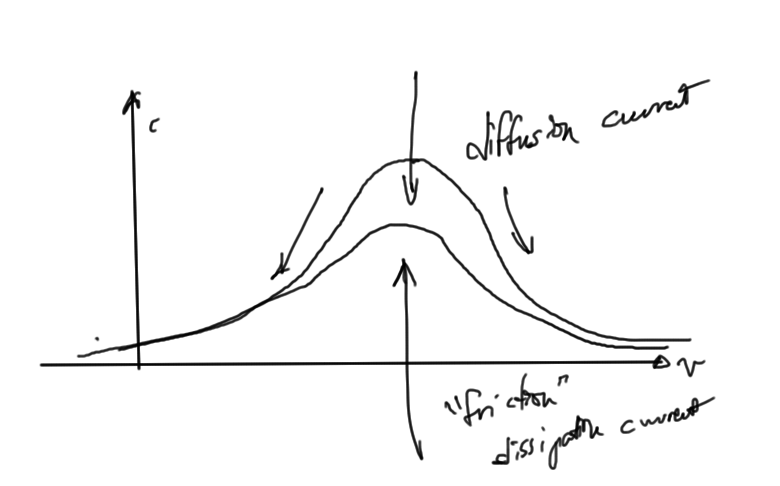 c
diffusion current
v
"friction"
dissipation current